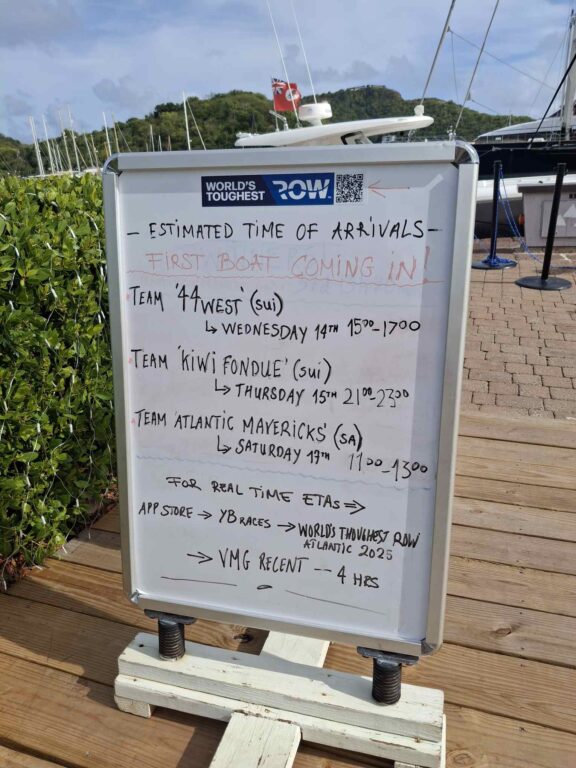 WORLD'S TOUGHEST ROW
- ESTIMATED TIME OF ARRIVALS -
FIRST BOAT COMING IN!
TEAM '44WEST' (SUI)
↳ WEDNESDAY 14TH 15⁰⁰-17⁰⁰
TEAM 'KIWI FONDUE' (SUI)
↳ THURSDAY 15TH 21⁰⁰-23⁰⁰
TEAM 'ATLANTIC MAVERICKS' (SA)
↳ SATURDAY 17TH 11⁰⁰-13⁰⁰
FOR REAL TIME ETAs ⇒
APP STORE → YB RACES → WORLD'S THOUGHEST ROW
ATLANTIC 2025
→ VMG RECENT -- 4 HRS